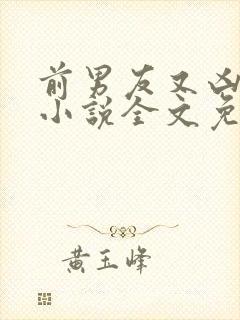 前男友又凶
小說全文免
黄玉峰